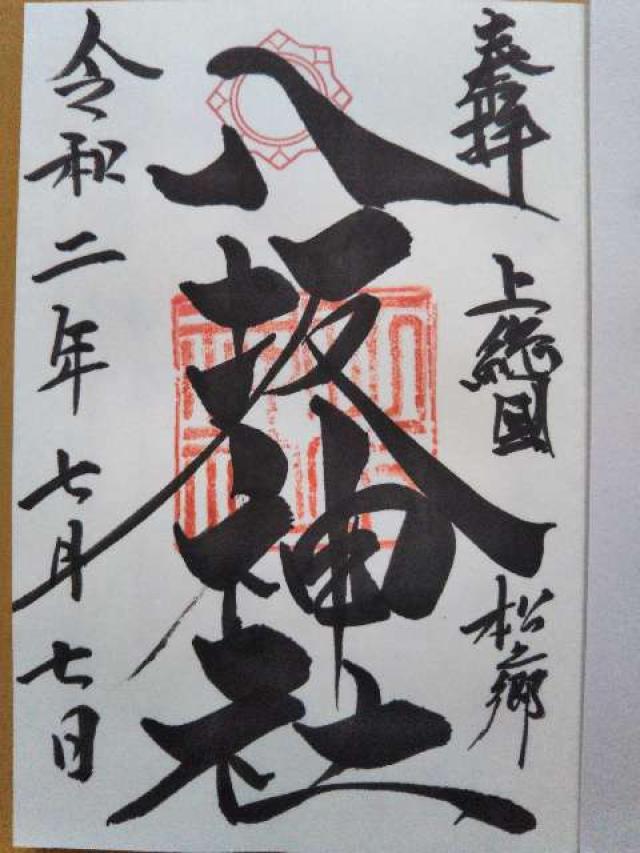 奉拝
上総国
松之郷
八坂神社
令和二年七月七日